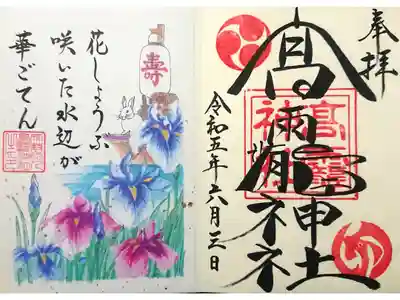 奉拝
高龗神社
高龗
神社
令和五年六月三日
壽
花しょうぶ
咲いた水辺が
華ごてん